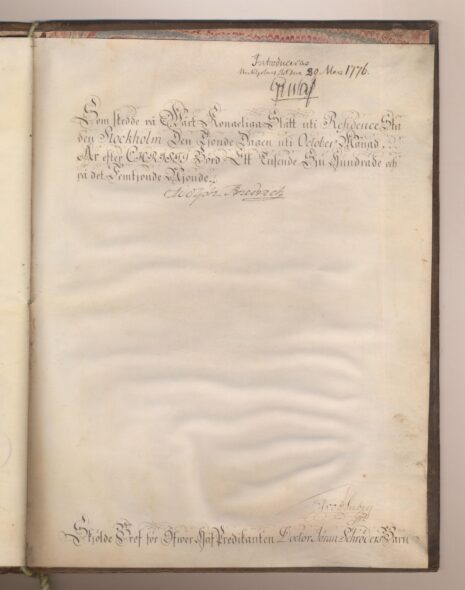 Introduceras
20 Mars 1776.
Som skedde på Wårt Kongeliga Slått uti Residence Sta
den Stockholm Den Tjonde Dagen uti October Månad,
År efter CHRISTI Bord Ett Tusende Siu Hundrade och
på det Femtjonde
Adolph Friedrich
Skjölde Bref för Ofwer Hof Predikanten Doctor Jöran Schröders Barn